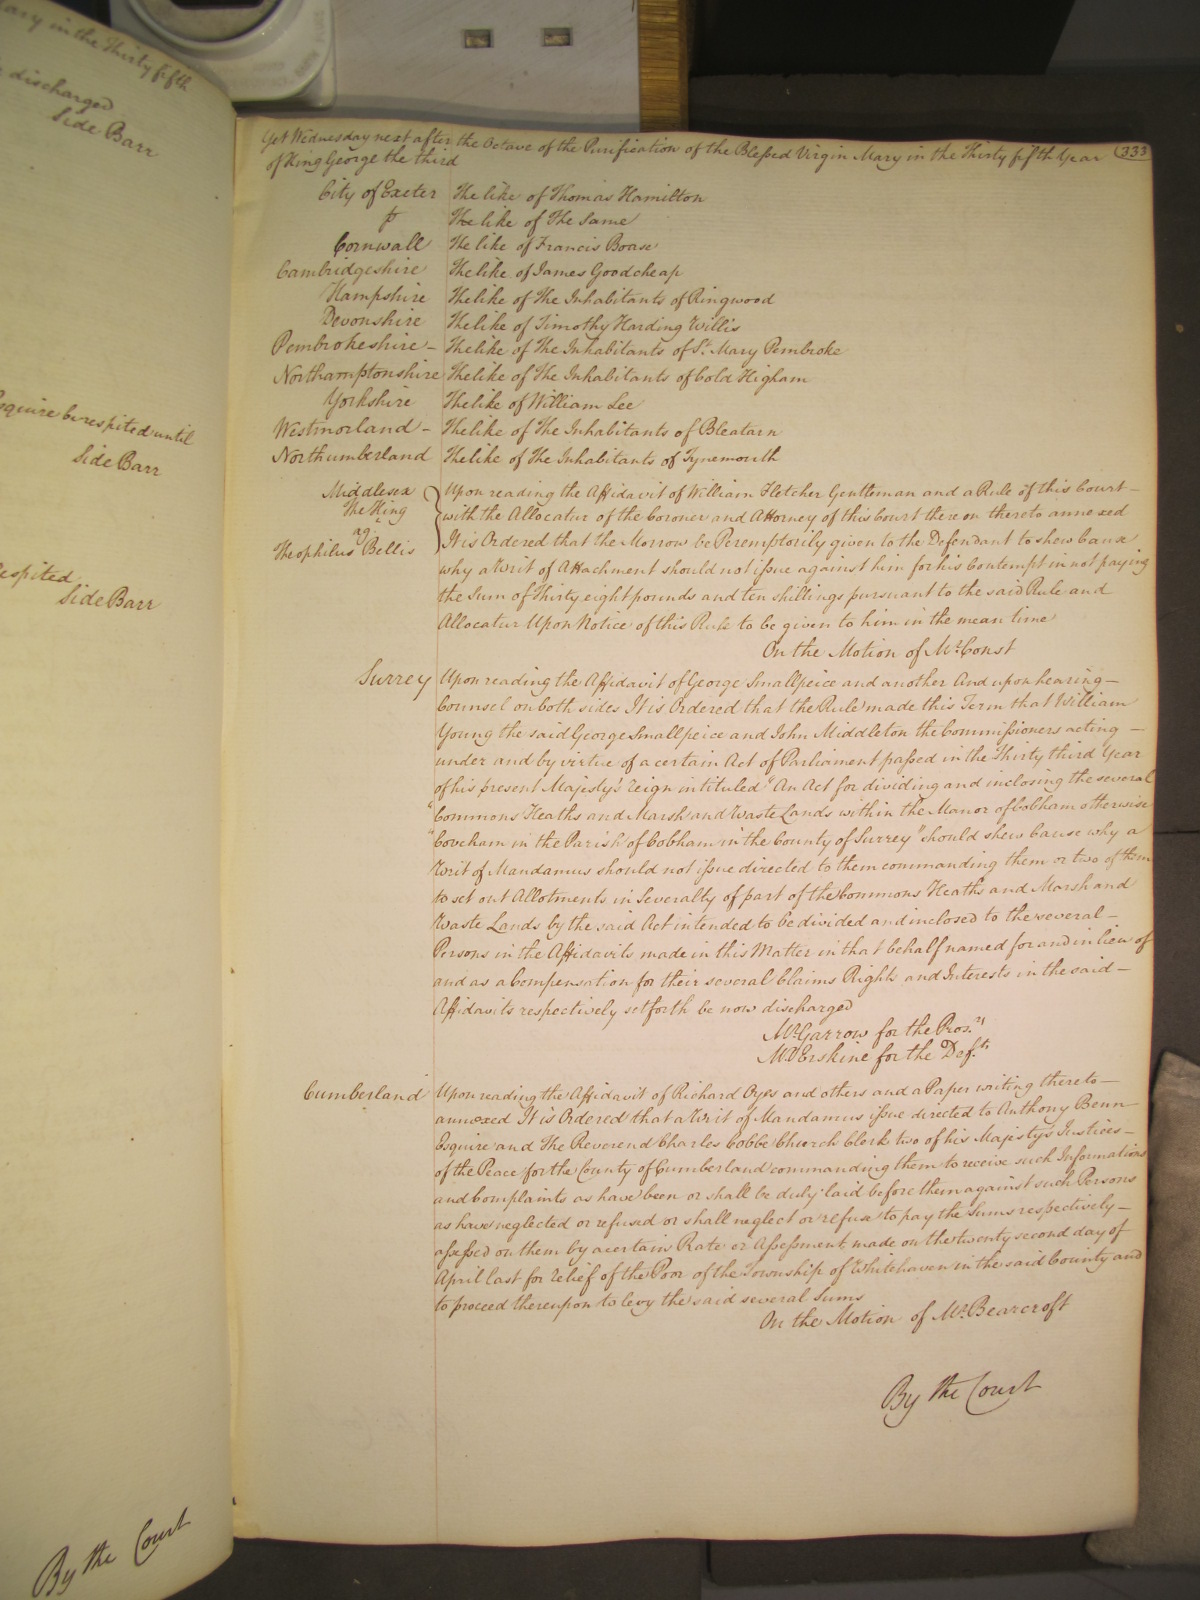 ary in the Thirty fifth
discharged
Side Barr
Esquire be respited until
Side Barr
respited
Side Barr
By the Court
Yet Wednesday next after the Octave of the Purification of the Blessed Virgin Mary in the Thirty fifth Year 333
of King George the third
City of Exeter The like of Thomas Hamilton
The like of The Same
Cornwall The like of Francis Boase
Cambridgeshire The like of James Goodcheap
Hampshire The like of The Inhabitants of Ringwood
Devonshire The like of Timothy Harding Willis
Pembrokeshire – The like of The Inhabitants of St. Mary Pembroke
Northamptonshire The like of The Inhabitants of Cold Higham
Yorkshire The like of William Lee
Westmorland – The like of The Inhabitants of Bleatarn
Northumberland The like of The Inhabitants of Tynemouth
Middlesex
The King
agt.
Theophilus Bellis
Upon reading the Affidavit of William Fletcher Gentleman and a Rule of this Court –
with the Allocatur of the Coroner and Attorney of this Court thereon thereto annexed
It is Ordered that the Morrow be Peremptorily given to the Defendant to shew Cause
why a Writ of Attachment should not issue against him for his Contempt in not paying
the Sum of Thirty eight pounds and ten shillings pursuant to the said Rule and
Allocatur Upon Notice of this Rule to be given to him in the mean time
On the Motion of Mr. Const
Surrey Upon reading the Affidavit of George Smallpeice and another And upon hearing –
Counsel on both sides It is Ordered that the Rule made this Term that William
Young the said George Smallpeice and John Middleton the Commissioners acting –
under and by virtue of a certain Act of Parliament passed in the Thirty third Year
of his present Majesty's reign intituled "An Act for dividing and inclosing the several
"Commons Heaths and Marsh and Waste Lands within the Manor of Cobham otherwise
"Coveham in the Parish of Cobham in the County of Surrey" should shew Cause why a
Writ of Mandamus should not issue directed to them commanding them or two of them
to set out Allotments in Severalty of part of the Commons Heaths and Marsh and
Waste Lands by the said Act intended to be divided and inclosed to the several –
Persons in the Affidavits made in this Matter in that behalf named for and in lieu of
and as a Compensation for their several Claims Rights and Interests in the said –
Affidavits respectively set forth be now discharged
Mr. Garrow for the Pros.rs
Mr. Erskine for the Def.ts
Cumberland Upon reading the Affidavit of Richard Oyes and others and a Paper writing thereto –
annexed It is Ordered that a Writ of Mandamus issue directed to Anthony Benn –
Esquire and The Reverend Charles Cobbe Church Clerk two of his Majesty's Justices –
of the Peace for the County of Cumberland commanding them to receive such Informations
and Complaints as have been or shall be duly laid before them against such Persons
as have neglected or refused or shall neglect or refuse to pay the Sums respectively –
assessed on them by a certain Rate or Assessment made on the twenty second day of
April last for relief of the Poor of the Township of Whitehaven in the said County and
to proceed thereupon to levy the said several Sums
On the Motion of Mr. Bearcroft
By the Court